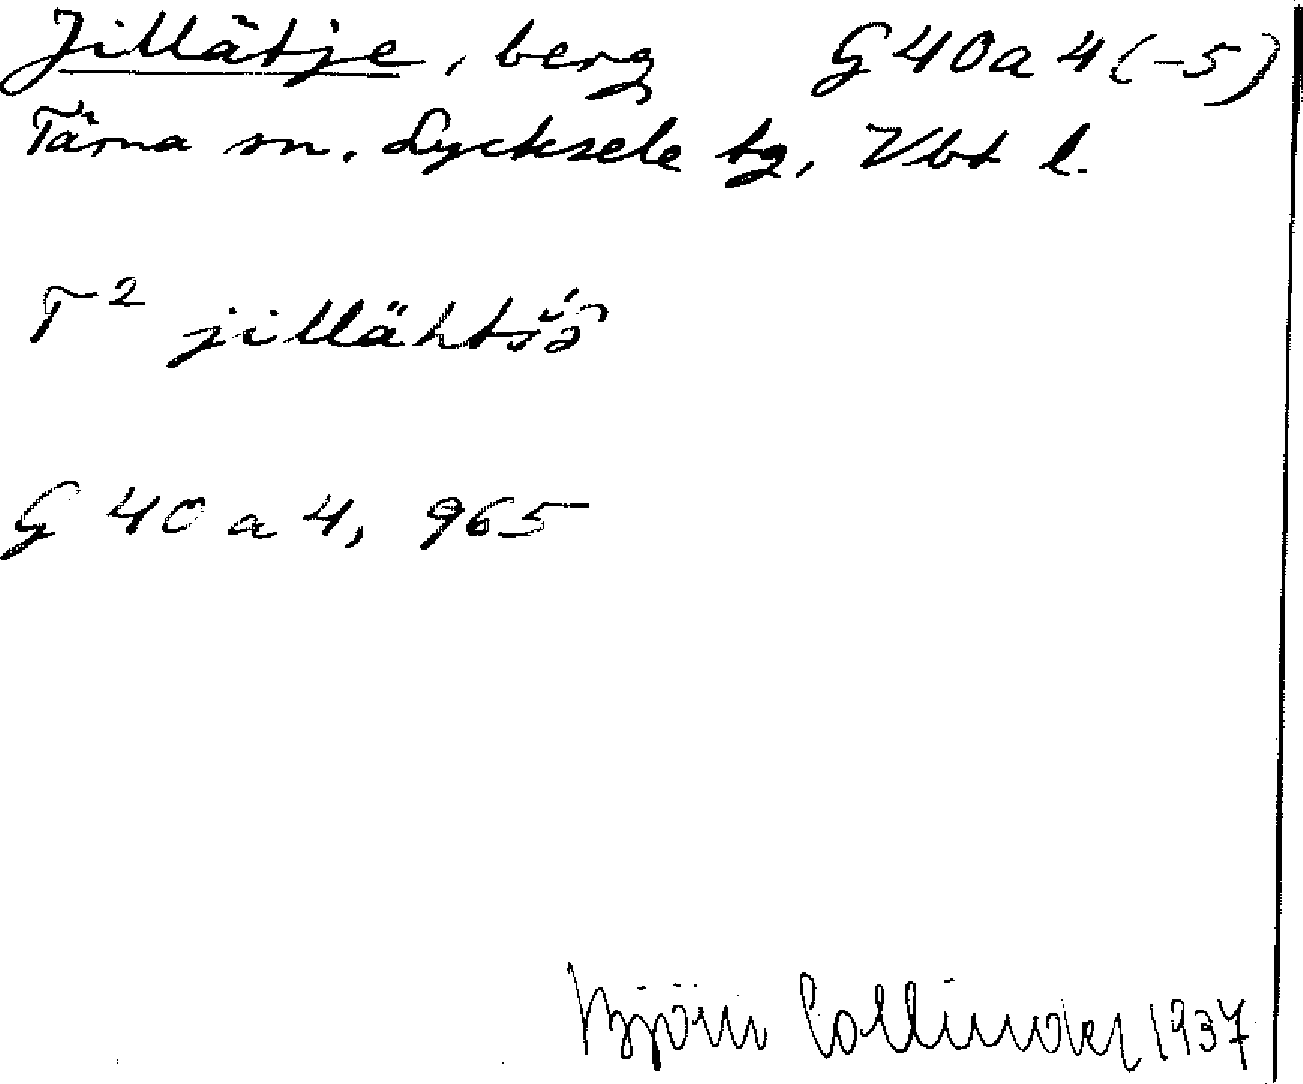 Jillätje, berg G 40 a 4 (-5)
Tärna sn. Lycksele tg, Vbt l.
T²
G 40 a 4, 965
Björn Collinder 1937